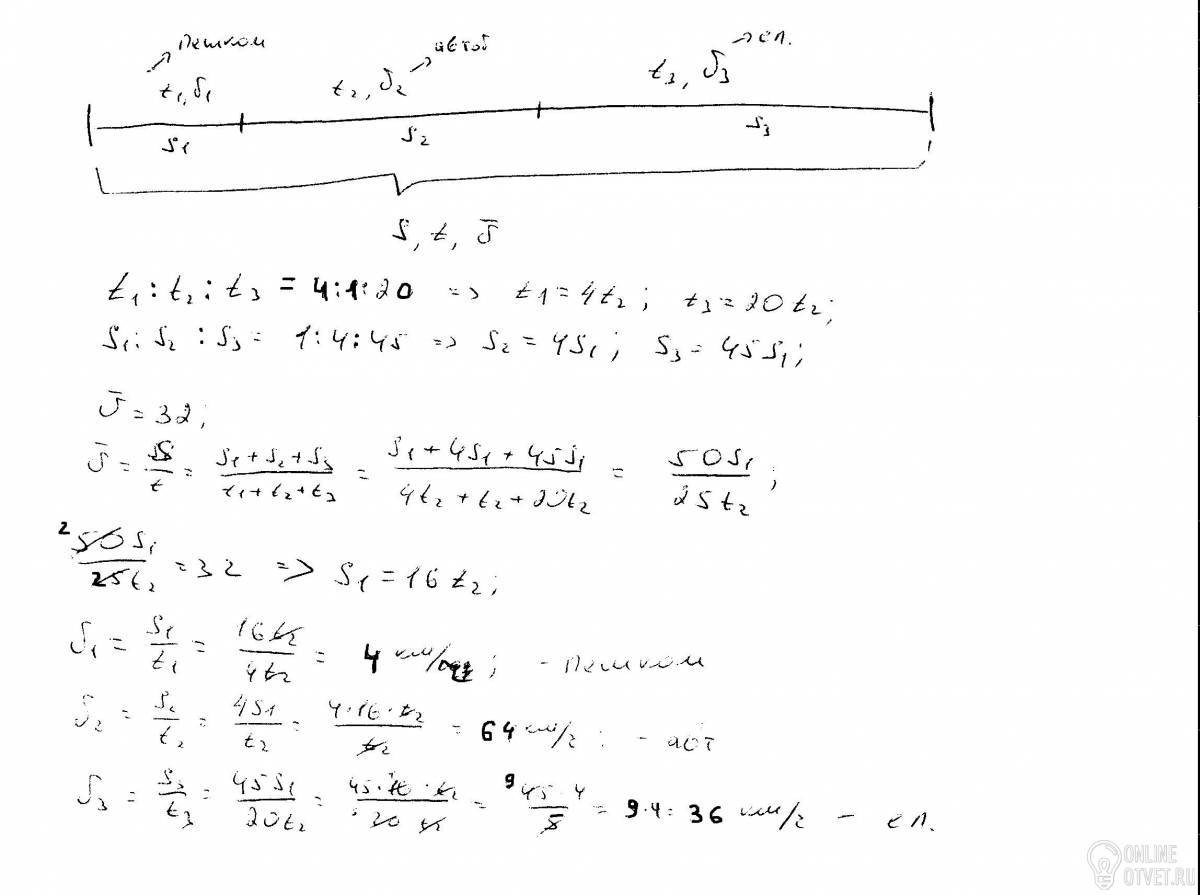 пешком автоб ел.
t₁, υ₁ t₂, υ₂ t₃, υ₃
S₁ S₂ S₃
S, t, ῡ
t₁ : t₂ : t₃ = 4:1:20 => t₁ = 4t₂; t₃ = 20t₂;
S₁ : S₂ : S₃ = 1:4:45 => S₂ = 4S₁; S₃ = 45S₁;
ῡ = 32;
ῡ = S/t = (S₁+S₂+S₃)/(t₁+t₂+t₃) = (S₁+4S₁+45S₁)/(4t₂+t₂+20t₂) = 50S₁/25t₂;
2 50S₁/25t₂ = 32 => S₁ = 16t₂;
υ₁ = S₁/t₁ = 16t₂/4t₂ = 4 км/; - пешком
υ₂ = S₂/t₂ = 4S₁/t₂ = 4·16·t₂/t₂ = 64 км/г; - авт
υ₃ = S₃/t₃ = 45S₁/20t₂ = 45·16·t₂/20t₂ = 9 45·4/5 = 9·4 = 36 км/г - ел.
ONLINE
OTVET.RU